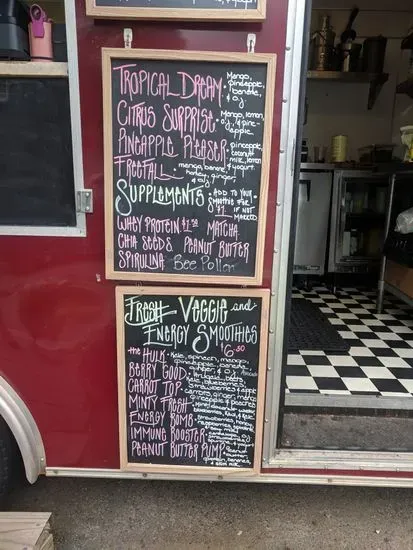 TROPICAL DREAM • Mango, pineapple, banana, & o.j.
CITRUS SURPRISE • Mango, lemon, o.j. & pineapple
PINEAPPLE PLEASER • pineapple, coconut milk, lemon & yogurt
FREEFALL • mango, banana, honey, ginger, & o.j.
SUPPLEMENTS • ADD TO YOUR SMOOTHIE FOR $1. IF NOT MARKED
WHEY PROTEIN $1.50 MATCHA
CHIA SEEDS PEANUT BUTTER
SPIRULINA Bee Pollen
FRESH VEGGIE and
ENERGY SMOOTHIES
$6.50
the HULK • Kale, spinach, mango, pineapple, banana, ginger & o.j.
BERRY GOOD • beets, blueberries, strawberries & apple
CARROT TOP • carrots, ginger, mango, pineapple & peaches
MINTY FRESH
ENERGY BOMB • strawberries, honey
IMMUNE BOOSTER
PEANUT BUTTER PUMP • peanut butter, banana